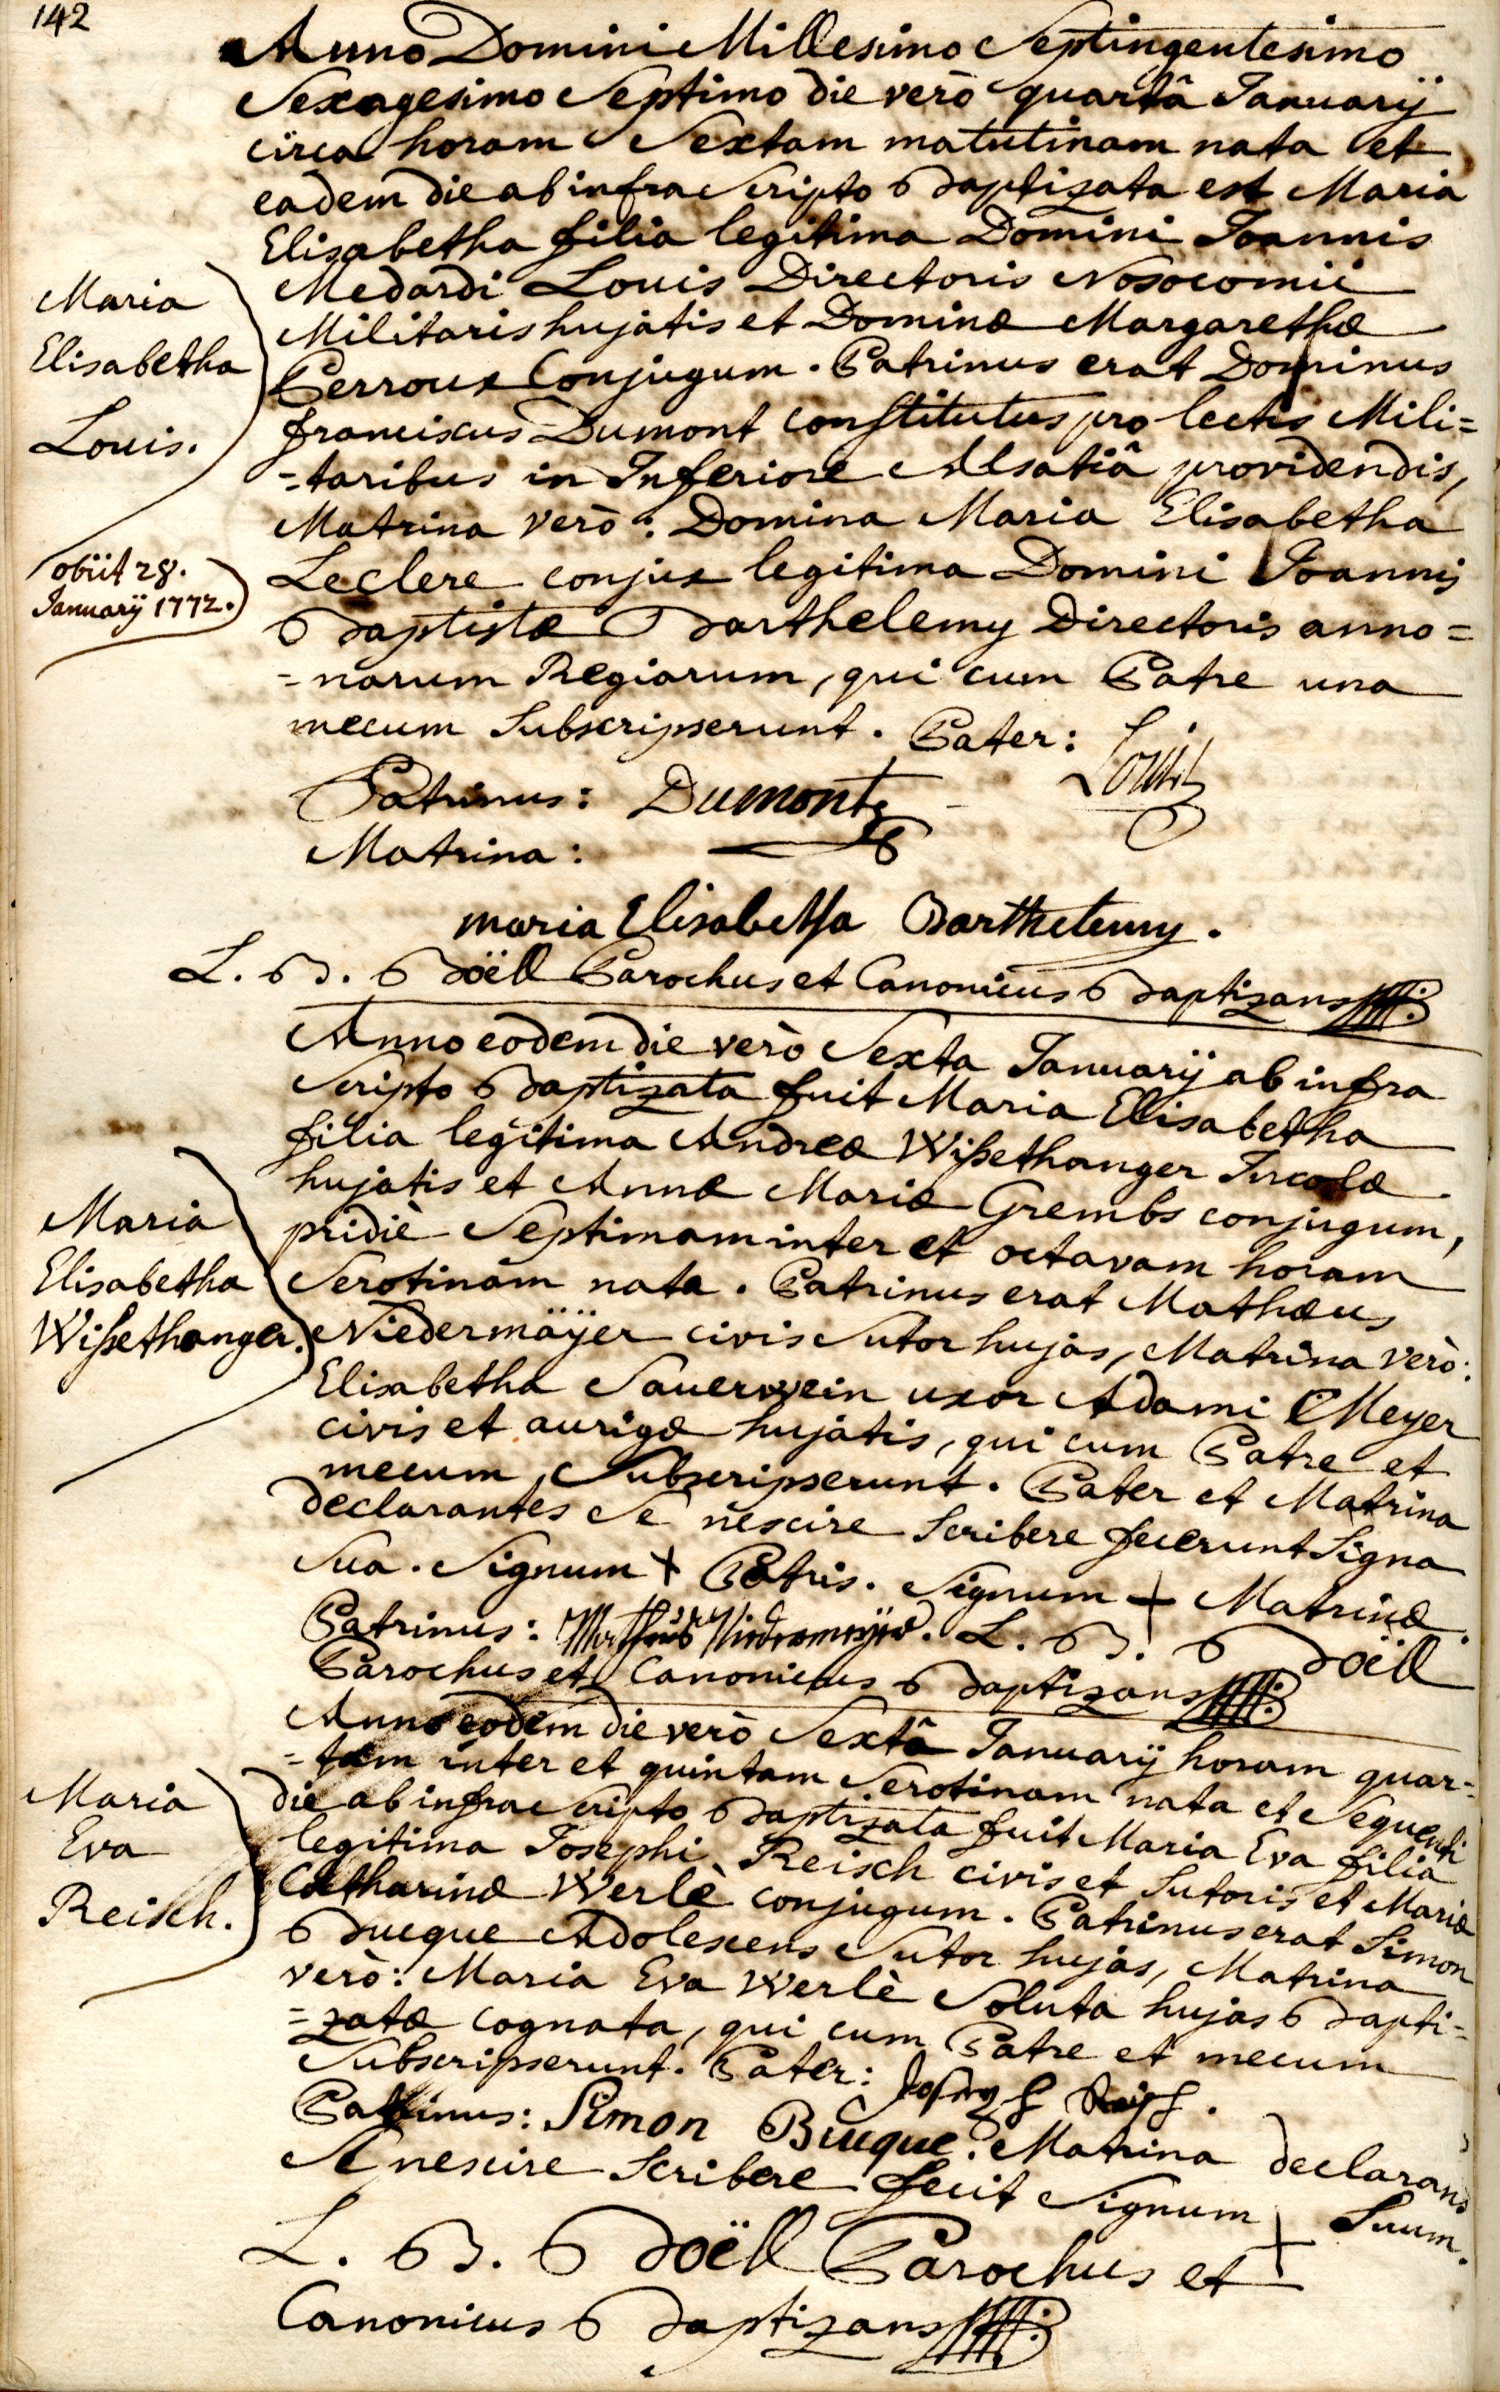 142
Anno Domini Millesimo Septingentesimo
Sexagesimo Septimo die verò quartâ Januarÿ
circa horam Sextam matutinam nata et
eadem die ab infra Scripto Baptizata est Maria
Elisabetha filia legitima Domini Joannis
Medardi Louis Directoris Nosocomii
Militaris hujatis et Dominæ Margarethæ
Perroux Conjugum. Patrinus erat Dominus
franciscus Dumont constitutus pro lectis Mili=
=taribus in Inferiore Alsatiâ providendis,
Matrina verò: Domina Maria Elisabetha
Leclere conjux legitima Domini Joannis
Baptistæ Barthelemy Directoris anno=
=narum Regiarum, qui cum Patre una
mecum Subscripserunt. Pater: Louis
Patrinus: Dumont
Matrina:
maria Elisabetha Barthelemy.
L. B. Boëll Parochus et Canonicus Baptizans
Maria
Elisabetha
Louis.
obiit 28.
Januarÿ 1772.
Anno eodem die verò Sexta Januarÿ ab infra
Scripto Baptizata fuit Maria Elisabetha
filia legitima Andreæ Wißethanger Incolæ
hujatis et Annæ Mariæ Grembs conjugum,
pridiè Septimam inter et octavam horam
Serotinam nata. Patrinus erat Mathæus
Niedermäÿer civis Sutor hujas, Matrina verò:
Elisabetha Sauerwein uxor Adami Meyer
civis et aurigæ hujatis, qui cum Patre et
mecum Subscripserunt. Pater et Matrina
declarantes Se nescire Scribere fecerunt Signa
Sua. Signum + Patris. Signum + Matrinæ.
Patrinus: Matheus Niedermeÿer. L. B. Boëll
Parochus et Canonicus Baptizans
Maria
Elisabetha
Wißethanger.
Anno eodem die verò Sextâ Januarÿ horam quar=
=tam inter et quintam Serotinam nata et Sequenti
die ab infra Scripto Baptizata fuit Maria Eva filia
legitima Josephi Reisch civis et Sutoris et Mariæ
Catharinæ Werlè conjugum. Patrinus erat Simon
Bucque Adolescens Sutor hujas, Matrina
verò: Maria Eva Werlè Soluta hujas Bapti=
=zatæ cognata, qui cum Patre et mecum
Subscripserunt. Pater: Joseph Reisch.
Patrinus: Simon Bucque. Matrina declarans
Se nescire Scribere fecit Signum + Suum.
L. B. Boëll Parochus et
Canonicus Baptizans
Maria
Eva
Reisch.